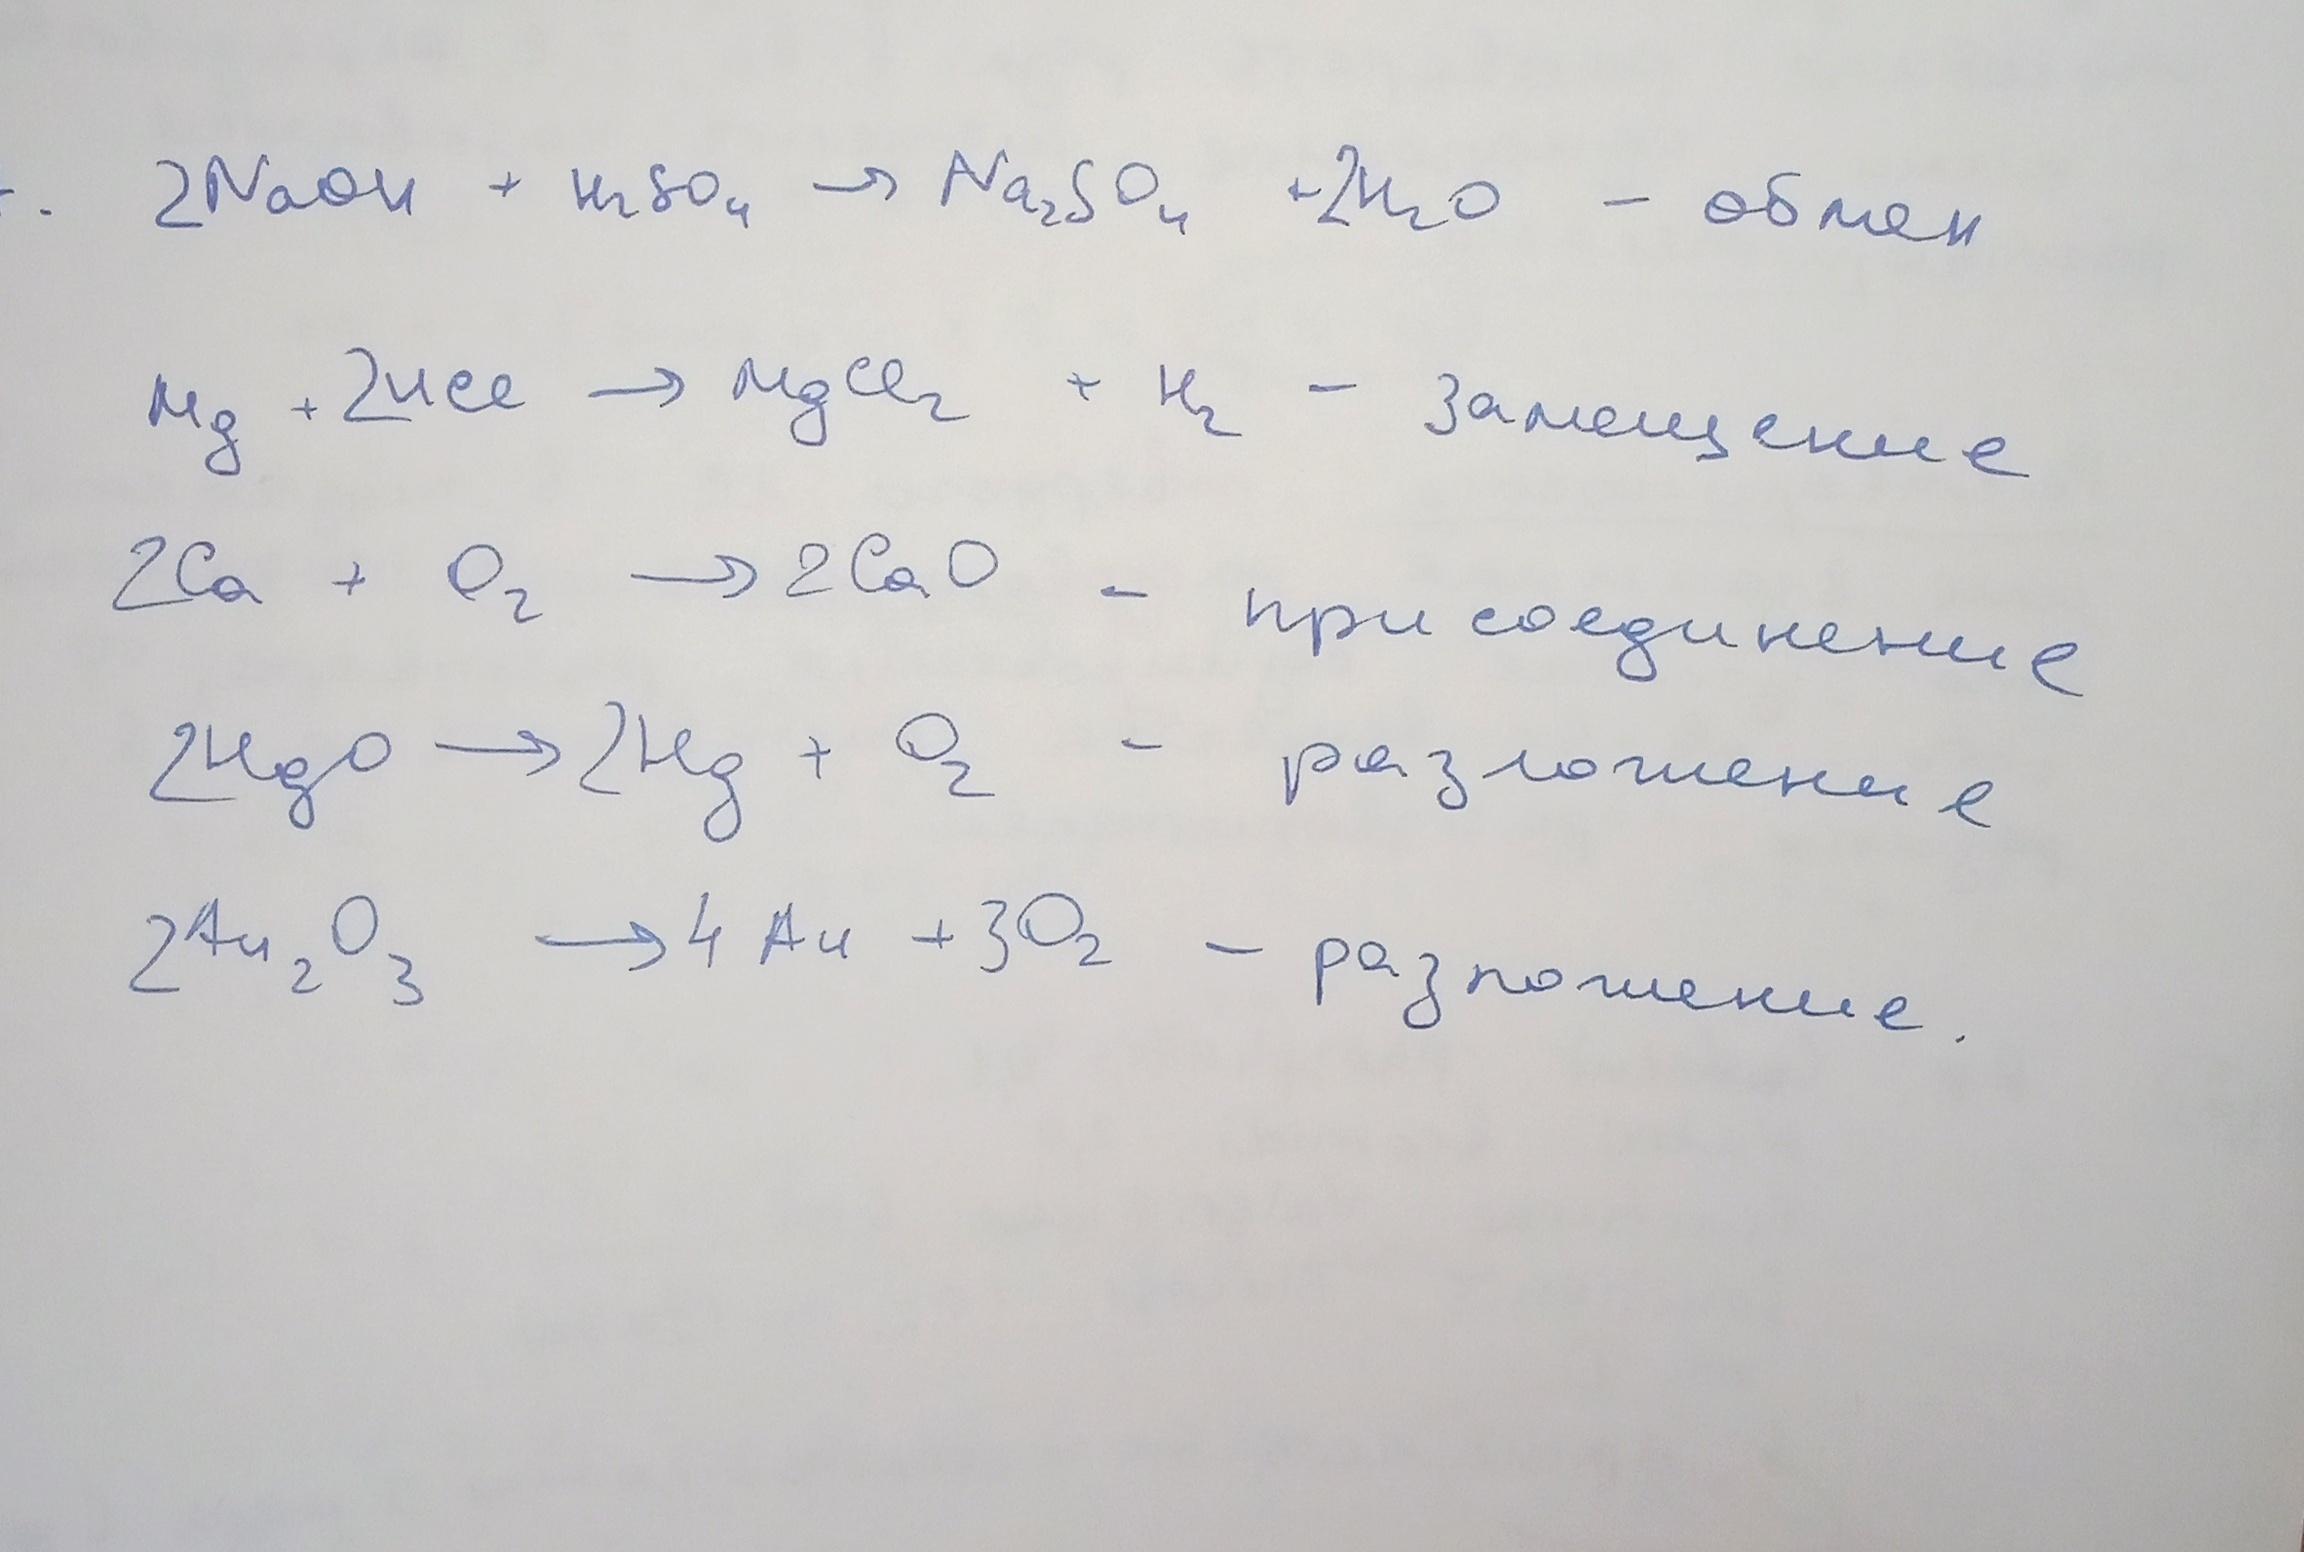 . 2NaOH + H₂SO₄ → Na₂SO₄ + 2H₂O - обмен
Mg + 2HCl → MgCl₂ + H₂ - замещение
2Ca + O₂ → 2CaO - присоединение
2HgO → 2Hg + O₂ - разложение
2Au₂O₃ → 4Au + 3O₂ - разложение.